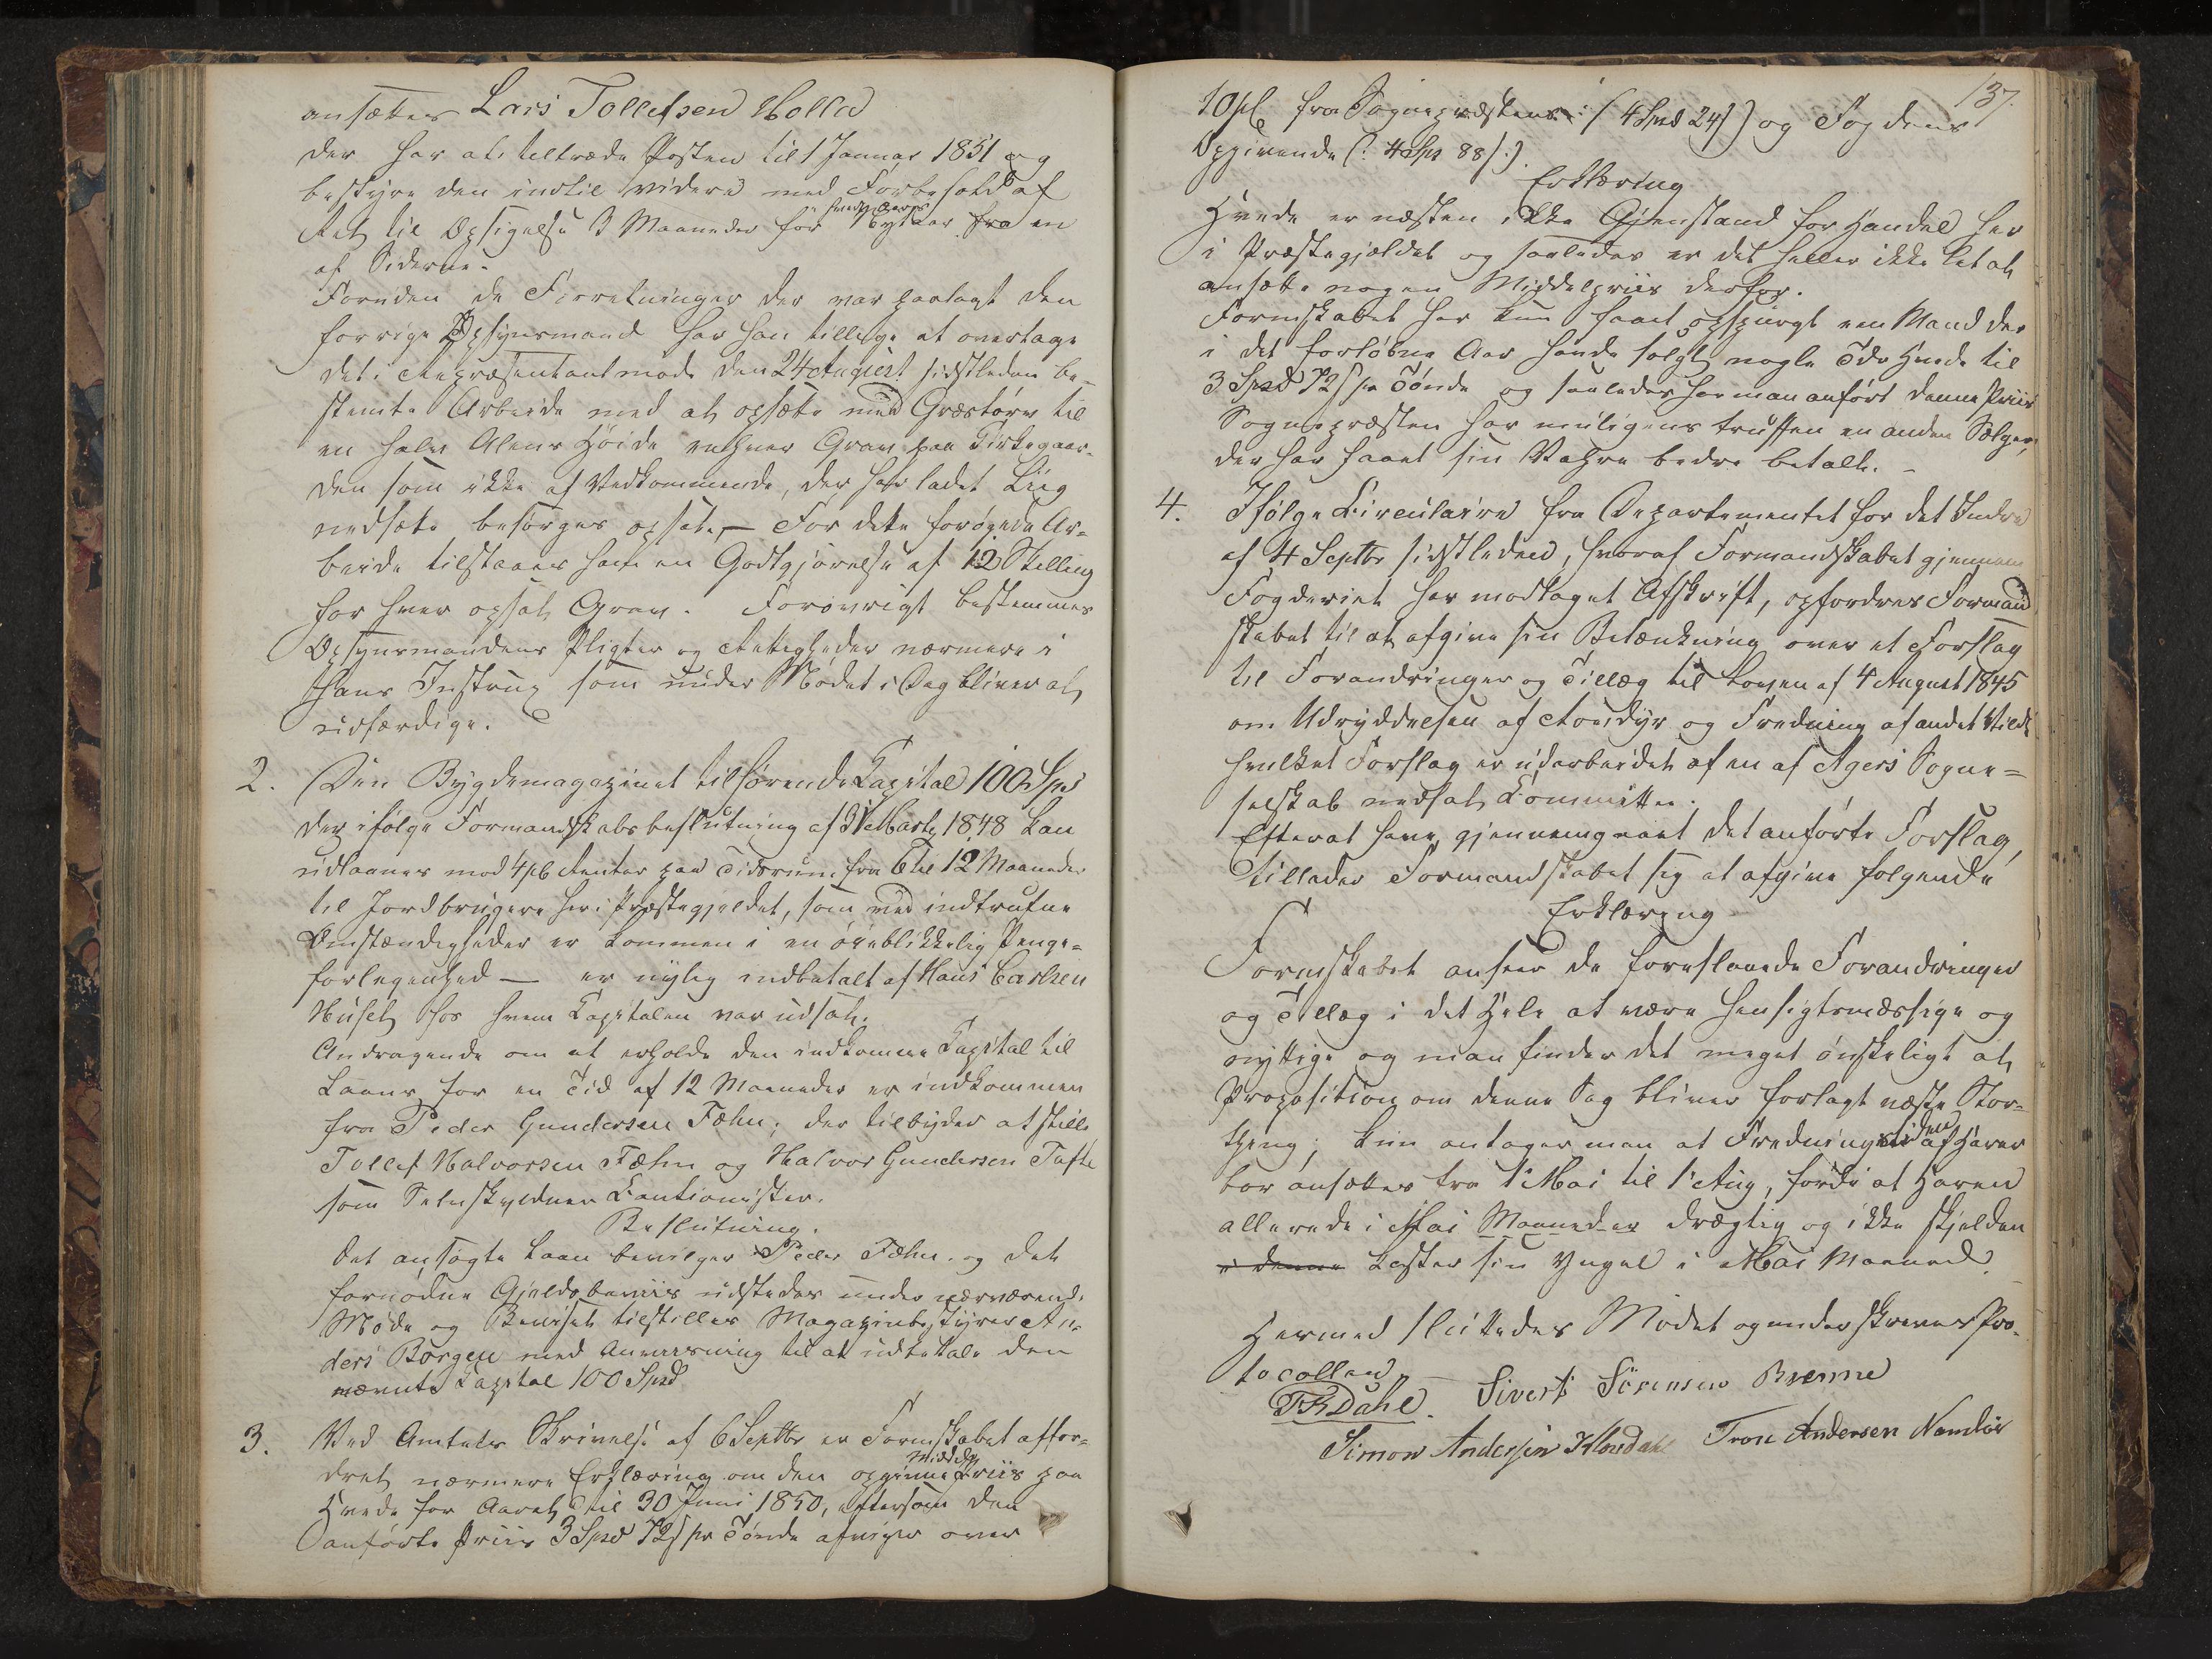 ansættes Lars Tollefsen Holla
der har at tiltræde Posten til 1 Januar 1851 og
bestyre den indtil videre med Forbehold af
Ret til Opsigelse 3 Maaneder før hvert Aars Nytaar fra en
af Siderne.
Foruden de Forretninger der var paalagt den
forrige Opsynsmand har han tillige at overtage
det i Repræsentantmøde den 24 August sidstleden be-
stemte Arbeide med at opsætte med Græstørv til
en halv Alens Høide enhver Grav paa Kirkegaar-
den som ikke af Vedkommende, der har ladet Liig
nedsætte besørges opsat. – For dette forøgede Ar-
beide tilstaaes ham en Godtgjørelse af 12 Skilling
for hver opsat Grav. Forøvrigt bestemmes
Opsynsmandens Pligter og Rettigheder nærmere i
hans Instrux som under Mødet i Dag bliver at
udfærdige.
2. Den Bygdemagazinet tilhørende Kapital 100 Spd
der ifølge Formandskabsbeslutning af Marts 1848 kan
udlaanes mod 4 pC Renter paa Tidsrum fra 6 til 12 Maaneder
til Jordbrugere her i Præstegjeldet, som ved indtrufne
Omstændigheder er kommen i en øieblikkelig Penge-
forlegenhed – er nylig indbetalt af Hans Carlsen
Huset hos hvem Kapitalen var udsat.
Andragende om at erholde den indkomne Kapital til
Laans for en Tid af 12 Maaneder er indkommen
fra Peder Gundersen Fæhn; der tilbyder at stille
Tollef Halvorsen Fæhn og Halvor Gundersen Tufte
som Selvskyldner Kautionister.
Beslutning.
Det ansøgte Laan bevilges Peder Fæhn. og det
fornødne Gjeldsbeviis udstedes under nærværende
Møde og Beviset tilstilles Magazinbestyrer An-
ders Borgen med Anvisning til at udbetale den
nævnte Kapital 100 Spd
3. Ved Amtets Skrivelse af 6 Septbr er Formskabet affor-
dret nærmere Erklæring om den opgivne Middelpriis paa
Hvede for Aaret til 30 Juni 1850, eftersom den
anførte Priis 3 Spd 72 s pr Tønde afviger over
137.
10 pC fra Sognepræstens (4 Spd 24 s) og Fogdens
Opgivende (: 4 Spd 88 s :).
Erklæring
Hvede er næsten ikke Gjenstand for Handel her
i Præstegjeldet og saaledes er det heller ikke let at
ansætte nogen Middelpriis derfor.
Formskabet har kun faaet opspurgt een Mand der
i det forløbne Aar havde solgt nogle Tdr Hvede til
3 Spd 72 s pr Tønde og saaledes har man anført denne Priis
Sognepræsten har muligens truffen en anden Sælger,
der har faaet sin Vahre bedre betalt. –
4. Ifølge Circulaire fra Departementet for det Indre
af 4 Septbr sidstleden, hvoraf Formandskabet gjennem
Fogderiet har modtaget Afskrift, opfordres Formand
skabet til at afgive sin Betænkning over et Forslag
til Forandringer og Tillæg til Loven af 4 August 1845
om Udryddelsen af Rovdyr og Fredning af andet Vildt
hvilket Forslag er udarbeidet af en af Agers Sogne-
selskab nedsat Committee.
Efterat have gjennemgaaet det anførte Forslag,
tillader Formandskabet sig at afgive følgende
Erklæring
Formskabet anseer de foreslaaede Forandringer
og Tillæg i det Hele at være hensigtsmæssige og
nyttige og man finder det meget ønskeligt at
Proposition om denne Sag bliver forlagt næste Stor-
thing; kun antager man at Fredningstiden af Harer
bør ansættes fra 1 Mai til 1 Aug, fordi at Haren
allerede i Mai Maaned er drægtig og ikke sjelden
i denne kaster sin Yngel i Mai Maaned.
Hermed sluttedes Mødet og underskrives Pro-
tocollen –
Dahl. Sivert Sörensen Brenne
Simon Andersen Kleivdahl Tron Andersen Namløs